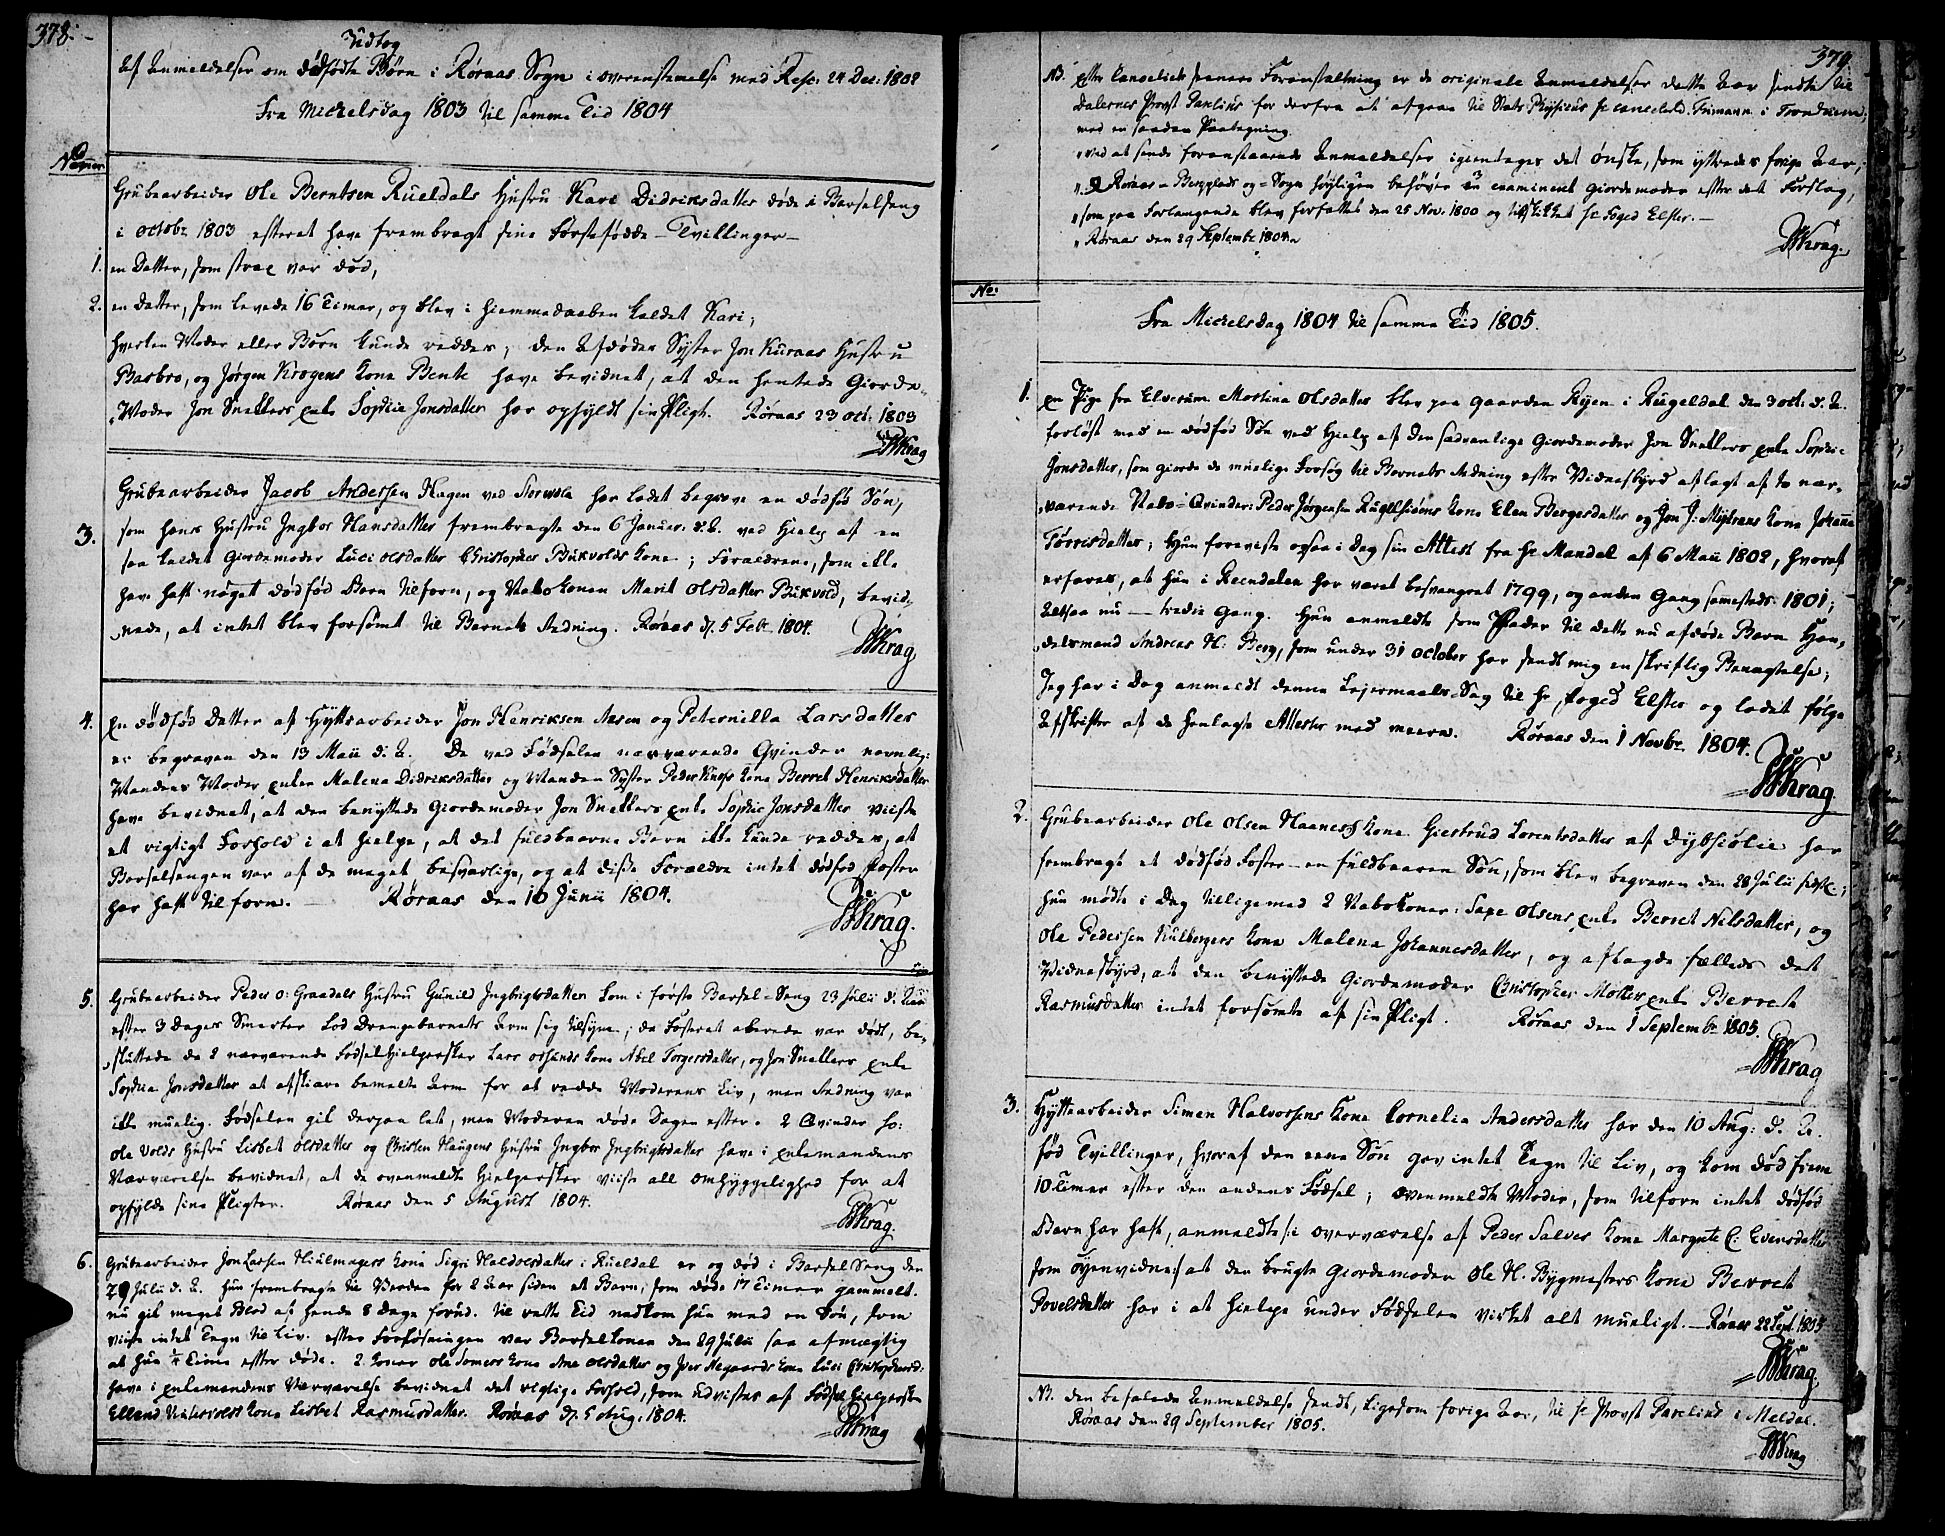 378.
Udtog
Af Anmeldelser om dødfødte Børn i Røraas Sogn i overenstemelse med Resc: 24 Dec: 1802
Fra Michelsdag 1803 til samme Tid 1804
Nummer
Grubearbeider Ole Berntsen Rueldals Hustru Kari Didriksdatter døde i Barselseng
i octobr 1803 efterat have frembragt sine førstefødde - Tvillinger -
1. en Datter, som strax var død,
2. en Datter, som levede 16 Timer, og blev i hiemmedaaben kaldet Kari;
hverken Moder eller Børn kunde reddes; den Afdødes Syster Jon Kuraas Hustru
Barbro, og Jørgen Krogens Kone Bente have bevidnet, at den hentede Giorde„
„Moder Jon Snekkers Enke Sophie Jonsdatter har opfyldt sin Pligt. Røraas 23 oct. 1803
Krag
Grubearbeider Jacob Andersen Hagen ved Storvola har ladet begrave en dødfød Søn,
3. som hans Hustru Ingbor Hansdatter frembragte den 6 Januar. d. A. ved Hielp af en
saa kaldet Giordemoder Luci olsdatter Christopher Bukvolds Kone; Forældrene, som ikke
have haft nøget dødfød Barn tilforn, og Nabokonen Marit Olsdatter Bukvold, bevid„
„nede, at intet blev forsømt til Barnets Redning. Røraas d. 5 Febr. 1804.
Krag
4. En dødfød Datter af Hyttearbeider Jon Henriksen Aasen og Peternilla Larsdatter
er begraven den 13 Maii d. A. De ved Fødselen nærværende Qvinder navnlig:
Mandens Moder, Enken Malena Didriksdatter og Mandens Syster Peder Kneps Kone Berret Henriksdatter
have bevidnet, at den benyttede Giordemoder Jon Snekkers Enke Sophie Jonsdatter viiste
et rigtigt Forhold i at hielpe, at det fuldbaarne Barn ikke kunde reddes, at
Barselsengen var af de meget besværlige, og at disse Forældre intet dødfød Foster
har haft tilforn. Røraas den 16 Junii 1804.
Krag.
5. Grubearbeider Peder O: Graadals Hustru Gunild Ingbrigtsdatter kom i første Barsel-Seng 23 Julii d. Aar
efter 3 Dages Smerter lod Drengebarnets Arm sig tilsyne; da Fosteret allerede var dødt, be„
„sluttede de 2 nærværende Fødselhielpersker Lars Osunds Kone Abel Torgersdatter, og Jon Snekkers Enke
Sophia Jonsdatter at afskiære bemelte Arm for at redde Moderens Liv, men Redning var
ikke muelig. Fødselen gik derpaa let, men Moderen døde Dagen efter. 2 Qvinder ho:
Ole Volds Hustru Lisbet Olsdatter og Christen Haugens Hustru Ingbor Ingbrigtsdatter have i Enkemandens
Nærværelse bevidnet, at de ovenmeldte Hielpersker viiste all omhyggelighed for at
opfylde sine Pligter. Røraas den 5 August 1804.
Krag.
6. Grubearbeider Jon Larsen Hiulmagers Kone Sigri Haldorsdatter i Rueldal er og død i Barsel Seng den
29 Julii d. A. hun frembragte til Verden for 2 Aar siden et Barn, som døde 17 Timer gammelt.
nu gik meget Blod af hende 8 Dage forud. til rette Tid nedkom hun med en Søn, som
viiste intet Tegn til Liv. efter Forløsningen var Barselkonen den 29 Julii saa afmægtig
at hun 1/4 Time efter døde. 2 Koner Ole Somers Kone Ane Olsdatter og Iver Aegaards Kone Luci Christophersd:
have i Enkemandens Nærværelse bevidnet det rigtige Forhold, som udvistes af Fødselhielpersken
Ellend Kone Lisbet Rasmusdatter. Røraas d. 5 Aug. 1804.
Krag
379.
NB. efter Cancelieh seenere Foranstaltning er de originale Anmeldelser dette Aar sendte til
Dalernes Provst Parelius for derfra at afgaae til Stats Physicus hr Cancelird. Frimann i Trondhiem,
med en saadan Paategning.
„ved at sende foranstaaende Anmeldelser igientages det Ønske, som yttredes forige Aar;
„at Røraas-Bergstads og-Sogn høyligen behøver en examineret Giordemoder efter det Forslag,
„som paa Forlangende blev forfattet den 25 Nov: 1800 og tilstillet hr Foged Elster.
„Røraas den 29 Septembr 1804.
Krag.
No:
Fra Michelsdag 1804 til samme Tid 1805.
1. En Pige fra Elverum Martina Olsdatter blev paa Gaarden Ryen i Rugeldal den 3 oct: d. A.
forløst med en dødfød Søn ved Hielp af den sædvanlige Giordemoder Jon Snekkers Enke Sophie
Jonsdatter, som giorde de muelige Forsøg til Barnets Redning efter Vidnesbyrd aflagt af to nær„
„værende Nabo-Qvinder: Peder Jørgensen Rugelsiøens Kone Elen Bergesdatter og Jon J: Myhrens Kone Johanna
Tørrisdatter; Hun foreviste ogsaa i Dag sin Attest fra hr Mandal af 6 Maii 1802, hvoraf
erfares, at hun i Reendalen har været besvangret 1799, og anden Gang samesteds 1801;
Altsaa nu — tredie Gang. Hun anmeldte som Fader til dette nu afdøde Barn Han„
„delsmand Andreas H: Berg, som under 31 october har sendt mig en skriftlig Benægtelse;
Jeg har i Dag anmeldt denne Leiermaals-Sag til hr Foged Elster og ladet følge
Afskrifter af de henlagte Attester med meere. Røraas den 1 Novbr. 1804.
Krag
2. Grubearbeider Ole Olsen Haaness Kone Giertrud Lorentsdatter af Dybsiølie har
frembragt et dødfød Foster - en fuldbaaren Søn, som blev begraven den 28 Julii sidstl:;
hun mødte i Dag tilligemed 2 Nabokoner: Saxe Olsens Enke Berret Nilsdatter, og
Ole Pedersen Kulbergers Kone Malena Johannesdatter, og aflagde fælleds det
Vidnesbyrd, at den benyttede Giordemoder Christopher Møllers Enke Berret
Rasmusdatter intet forsømte af sin Pligt. Røraas den 1 Septembr 1805.
Krag
3. Hyttearbeider Simen Halvorsens Kone Cornelia Andersdatter har den 10 Aug: d. A.
fød Tvillinger, hvoraf den eene Søn gav intet Tegn til Liv, og kom død frem
10 Timer efter den andens Fødsel; ovenmeldte Moder, som tilforn intet dødfød
Barn har haft, anmeldte i overværelse af Peder Salvers Kone Margrete C: Evensdatter
som øyenvidne at den brugte Giordemoder Ole H. Bygmesters Kone Berret
Povelsdatter har i at hielpe under Fødselen virket alt mueligt. - Røraas 22 Sept. 1805
Krag.
NB. den befalede Anmeldelse sendt, ligesom forige Aar, til hr Provst Parelius i Meldal.
Røraas den 29 September 1805.
Krag